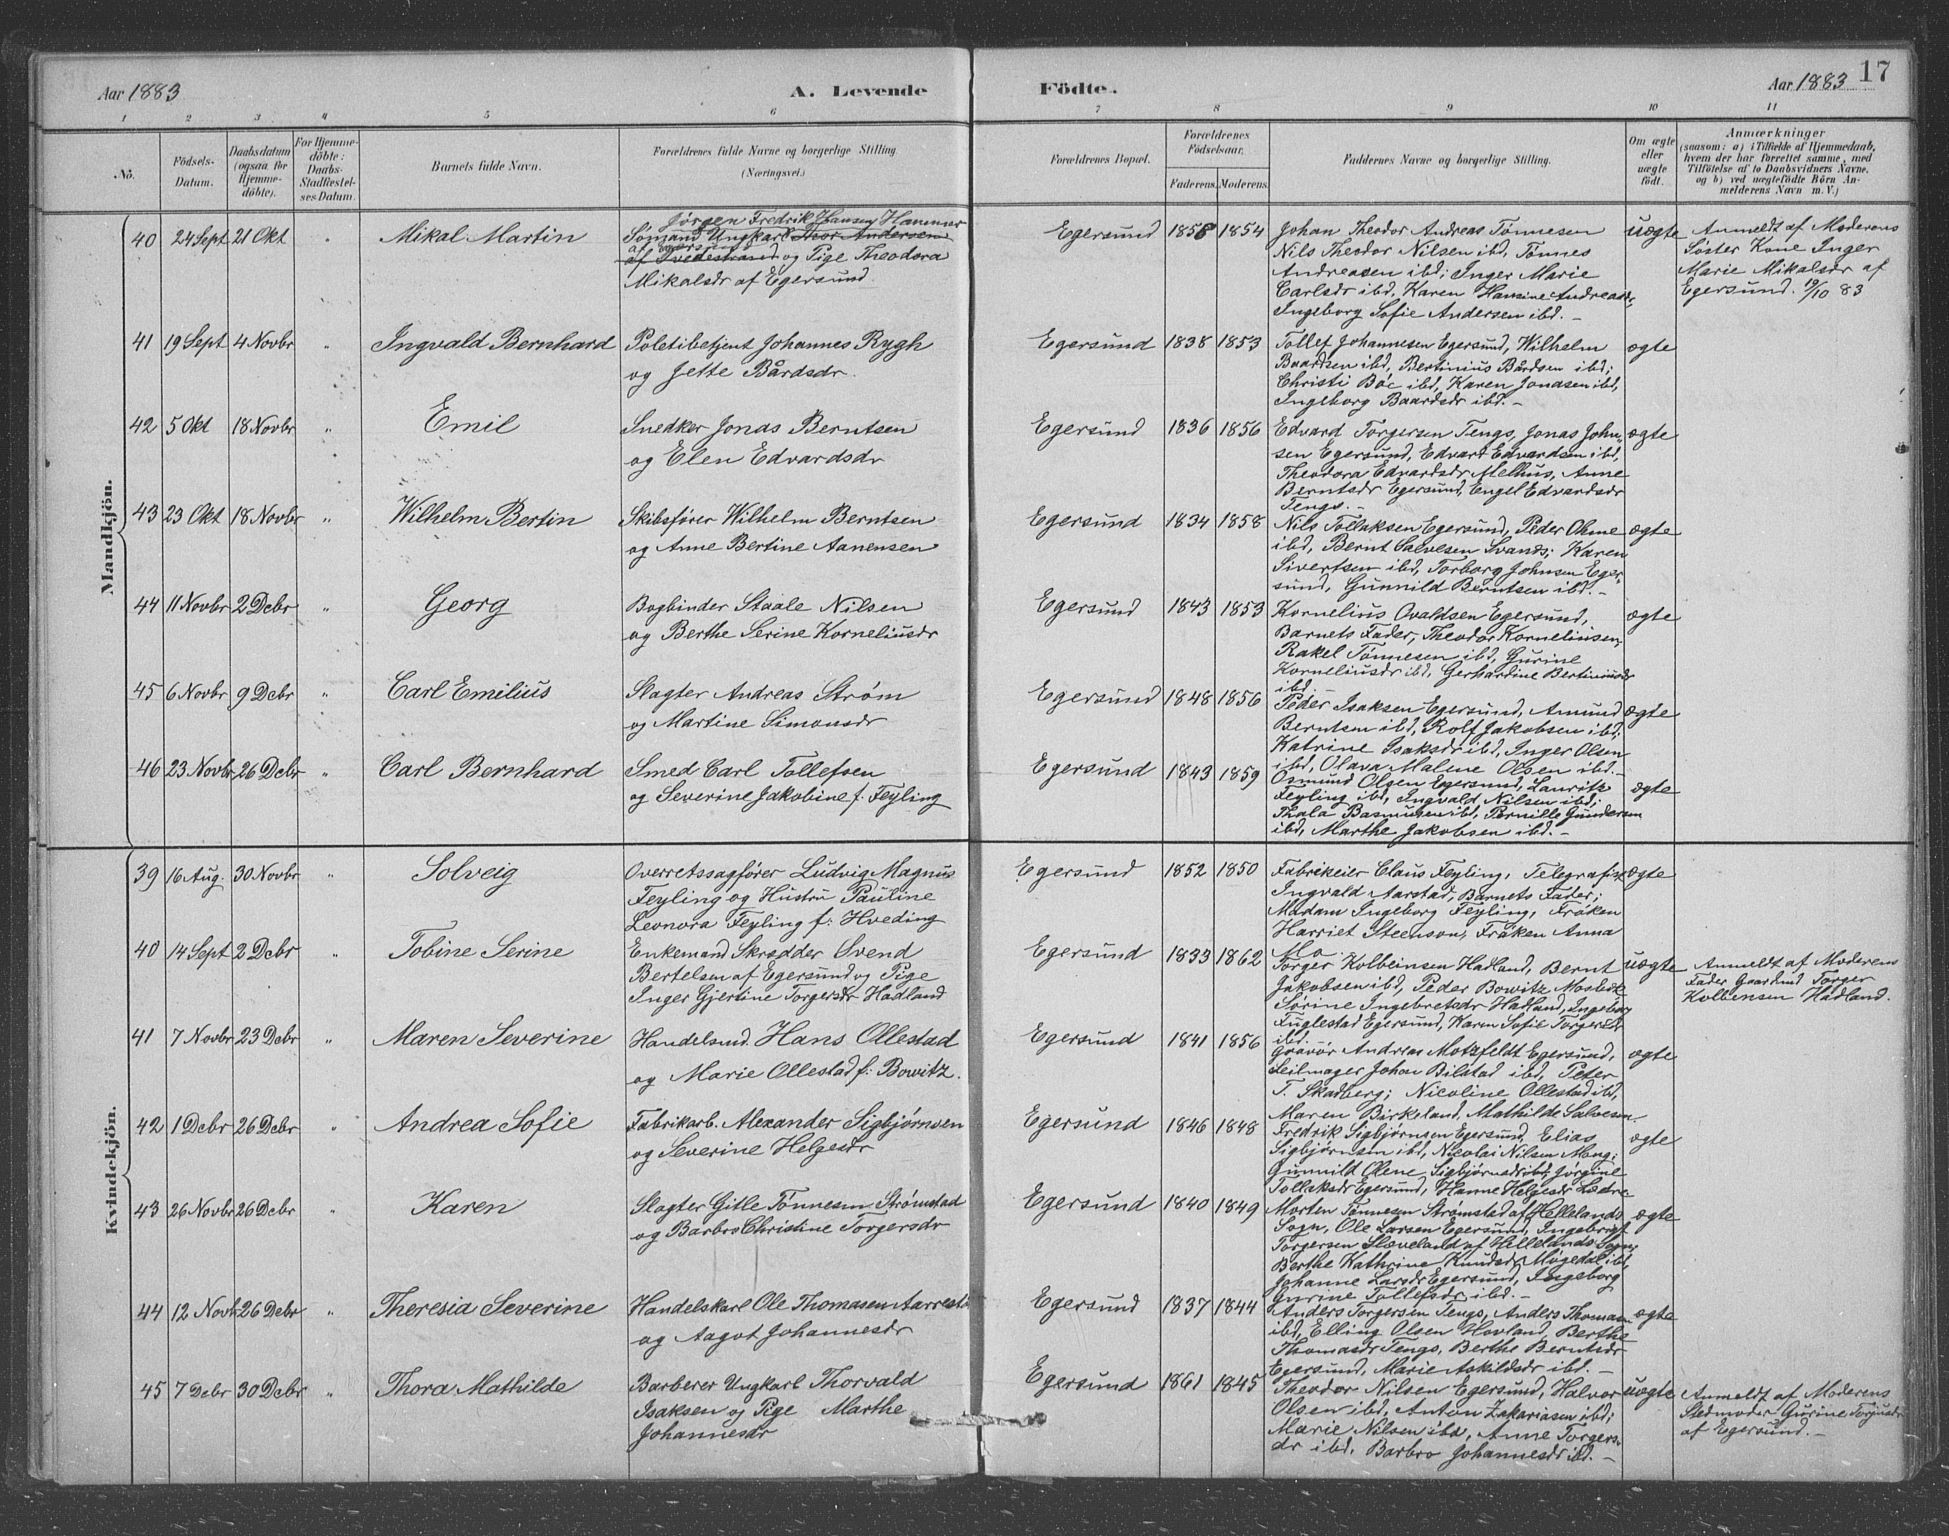 Aar 1883
A. Levende
Födte.
Aar 1883
17
1 2 3 4 5 6 7 8 9 10 11
No.
Födsels-
Datum.
Daabsdatum
(ogsaa for
Hjemme-
döbte).
For Hjemme-
döbte:
Daabs-
Stadfæstel-
ses Datum.
Barnets fulde Navn.
Forældrenes fulde Navne og borgerlige Stilling
(Næringsvei.)
Forældrenes Bopæl.
Forældrenes
Födselsaar.
Faderens. Moderens.
Faddernes Navne og borgerlige Stilling.
Om ægte
eller
uægte
födt.
Anmærkninger
(saasom: a) i Tilfælde af Hjemmedaab,
hvem der har forrettet samme, med
Tilföielse af to Daabsvidners Navne.
og b) ved uægtefödte Börn An-
melderens Navn m. V.)
Mandkjön.
40 24 Sept 21 Okt " Mikal Martin
Jørgen Fredrik Hansen Hammer
Sømand Ungkarl Thor Andersen
af Tvedestrand og Pige Theodora
Mikalsdr af Egersund
Egersund 1858 1854
Johan Theodor Andreas Tønnesen
Nils Theodor Nilsen ibd, Tønnes
Andreasen ibd; Inger Marie
Carlsdr ibd, Karen Hansine Andreasdr,
Ingeborg Sofie Andersen ibd. –
uægte
Anmeldt af Moderens
Søster Kone Inger
Marie Mikalsdr af
Egersund. 19/10 83
41 19 Sept 4 Novbr " Ingvald Bernhard
Poletibetjent Johannes Rygh
og Jette Bårdsdr.
Egersund 1838 1853
Tollef Johannesen Egersund, Wilhelm
Baardsen ibd, Bertinius Bårdsen ibd;
Christi Bøe ibd, Karen Jonasen ibd,
Ingeborg Baardsdr ibd. –
ægte
42 5 Okt 18 Novbr " Emil
Snedker Jonas Berntsen
og Elen Edvardsdr
Egersund 1836 1856
Edvard Torgersen Tengs, Jonas John-
sen Egersund, Edvart Edvardsen ibd,
Theodora Edvardsdr Melhus, Anne
Berntsdr Egersund, Engel Edvardsdr
Tengs. –
ægte
43 23 Okt 18 Novbr " Wilhelm Bertin
Skibsfører Wilhelm Berntsen
og Anne Bertine Aanensen
Egersund 1834 1858
Nils Tollaksen Egersund, Peder Ohme
ibd, Bernt Salvesen Svands; Karen
Sivertsen ibd, Torborg Johnsen Eger-
sund, Gunnild Berntsen ibd. –
ægte
44 11 Novbr 2 Debr " Georg
Bogbinder Staale Nilsen
og Berthe Serine Korneliusdr
Egersund 1843 1853
Kornelius Ovaldsen Egersund,
Barnets Fader, Theodor Korneliusen,
Rakel Tønnesen ibd, Gurine
Korneliusdr ibd, Gerhardine Bertiniusdr
ibd.
ægte
45 6 Novbr 9 Debr " Carl Emilius
Slagter Andreas Strøm
og Martine Simonsdr
Egersund 1848 1856
Peder Isaksen Egersund, Amund
Berntsen ibd, Rolf Jakobsen ibd,
Katrine Isaksdr ibd, Inger Olsen
ibd, Olava Malene Olsen ibd. –
ægte
46 23 Novbr 26 Debr " Carl Bernhard
Smed Carl Tollefsen
og Severine Jakobine f. Feyling
Egersund 1843 1859
Osmund Olsen Egersund, Lauritz
Feyling ibd, Ingvald Nilsen ibd;
Thala Rasmusen ibd, Pernille Gundersen
ibd, Marthe Jakobsen ibd. –
ægte
Kvindekjön.
39 16 Aug. 30 Novbr " Solveig
Overretssagfører Ludvig Magnus
Feyling og Hustru Pauline
Leonora Feyling f: Hveding
Egersund 1852 1850
Fabrikeier Claus Feyling, Telegrafist
Ingvald Aarstad, Barnets Fader;
Madam Ingeborg Feyling, Frøken
Harriet Steenson, Frøken Anna
Mo
ægte
40 14 Sept 2 Debr " Tobine Serine
Enkemand Skrædder Svend
Bertelsen af Egersund og Pige
Inger Gjertine Torgersdr Hadland
Egersund 1833 1862
Torger Kolbeinsen Hadland, Bernt
Jakobsen ibd, Peder Bowitz Mosbek
Sørine Ingebretsdr Hadland, Ingeborg
Fuglestad Egersund, Karen Sofie Torgersdr
ibd.
uægte
Anmeldt af Moderens
Fader Gaardmd Torger
Kolbensen Hadland.
41 7 Novbr 23 Debr " Maren Severine
Handelsmd. Hans Ollestad
og Marie Ollestad f: Bowitz.
Egersund 1841 1856
Gravør Andreas Motzfeldt Egersund,
Seilmager Johan Bilstad ibd, Peter
T. Skadberg; Nicoline Ollestad ibd,
Maren Birkeland, Mathilde Salvesen
ægte
42 1 Debr 26 Debr " Andrea Sofie
Fabrikarb. Alexander Sigbjørnsen
og Severine Helgesdr
Egersund 1846 1848
Fredrik Sigbjørnsen Egersund, Elias
Sigbjørnsen ibd, Nicolai Nilsen Mong;
Gunnild Olene Sigbjørnsdr ibd, Jørgine
Tollaksdr Egersund, Hanne Helgesdr Lædre
ægte
43 26 Novbr 26 Debr " Karen
Slagter Gitle Tønnesen Strømstad
og Barbro Christine Torgersdr
Egersund 1840 1849
Morten Tønnesen Strømstad af Hellelands
Sogn, Ole Larsen Egersund, Ingebregt
Torgersen Slæveland af Hellelands Sogn;
Berthe Kathrine Knudsdr Møgedal ibd,
Johanne Larsdr Egersund, Ingeborg
Gurine Tollefsdr ibd. –
ægte
44 12 Novbr 26 Debr " Theresia Severine
Handelskarl Ole Thomasen Aarrestad
og Aagot Johannesdr
Egersund 1837 1844
Anders Torgersen Tengs, Anders Thomasen
ibd, Elling Olsen Hovland, Berthe
Thomasdr Tengs, Berthe Berntsdr
Egersund, Marie Askildsdr ibd. –
ægte
45 7 Debr 30 Debr " Thora Mathilde
Barberer Ungkarl Thorvald
Isaksen og Pige Marthe
Johannesdr
Egersund 1861 1845
Theodor Nilsen Egersund, Halvor
Olsen ibd, Anton Zakariasen ibd;
Marie Nilsen ibd, Anne Torgers-
dr ibd, Barbro Johannesdr ibd. –
uægte
Anmeldt af Moderens
Stedmoder Gurine Torjusdr
af Egersund. –